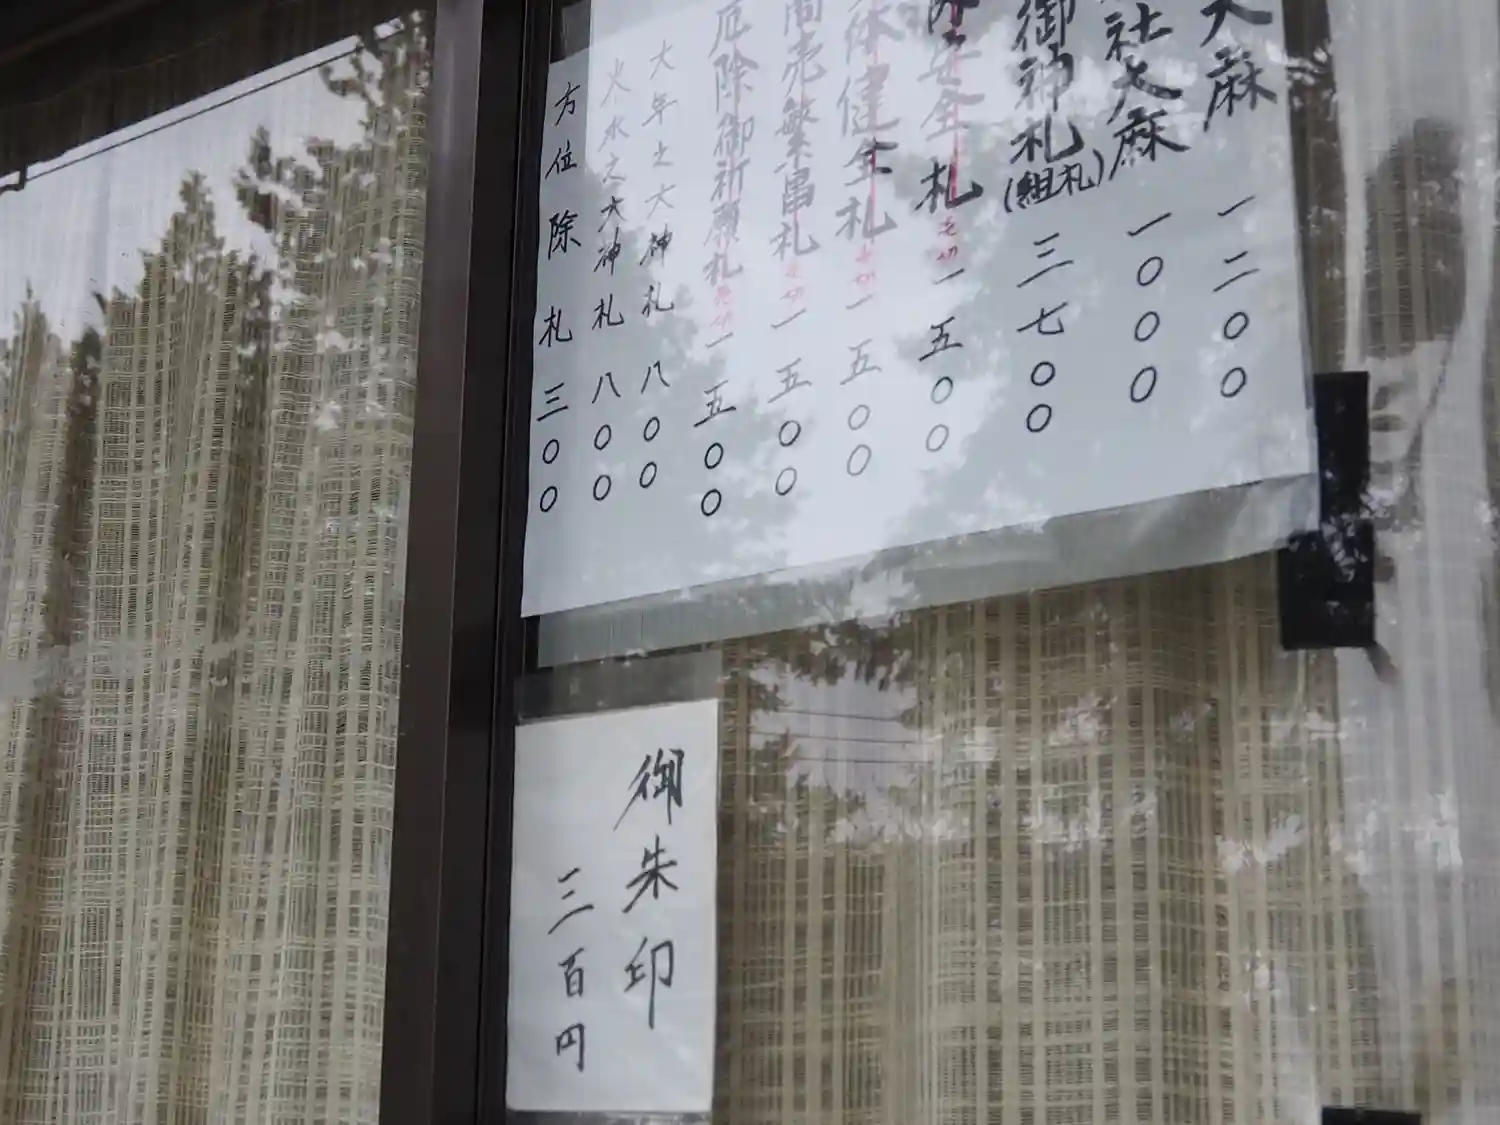 大麻 一二〇〇
社大麻 一〇〇〇
御神札(組札) 三七〇〇
安全札 売切 一五〇〇
体健全札 売切 一五〇〇
商売繁冨札 売切 一五〇〇
厄除御祈願札 売切 一五〇〇
大年之大神札 八〇〇
火水之大神札 八〇〇
方位除札 三〇〇
御朱印
三百円